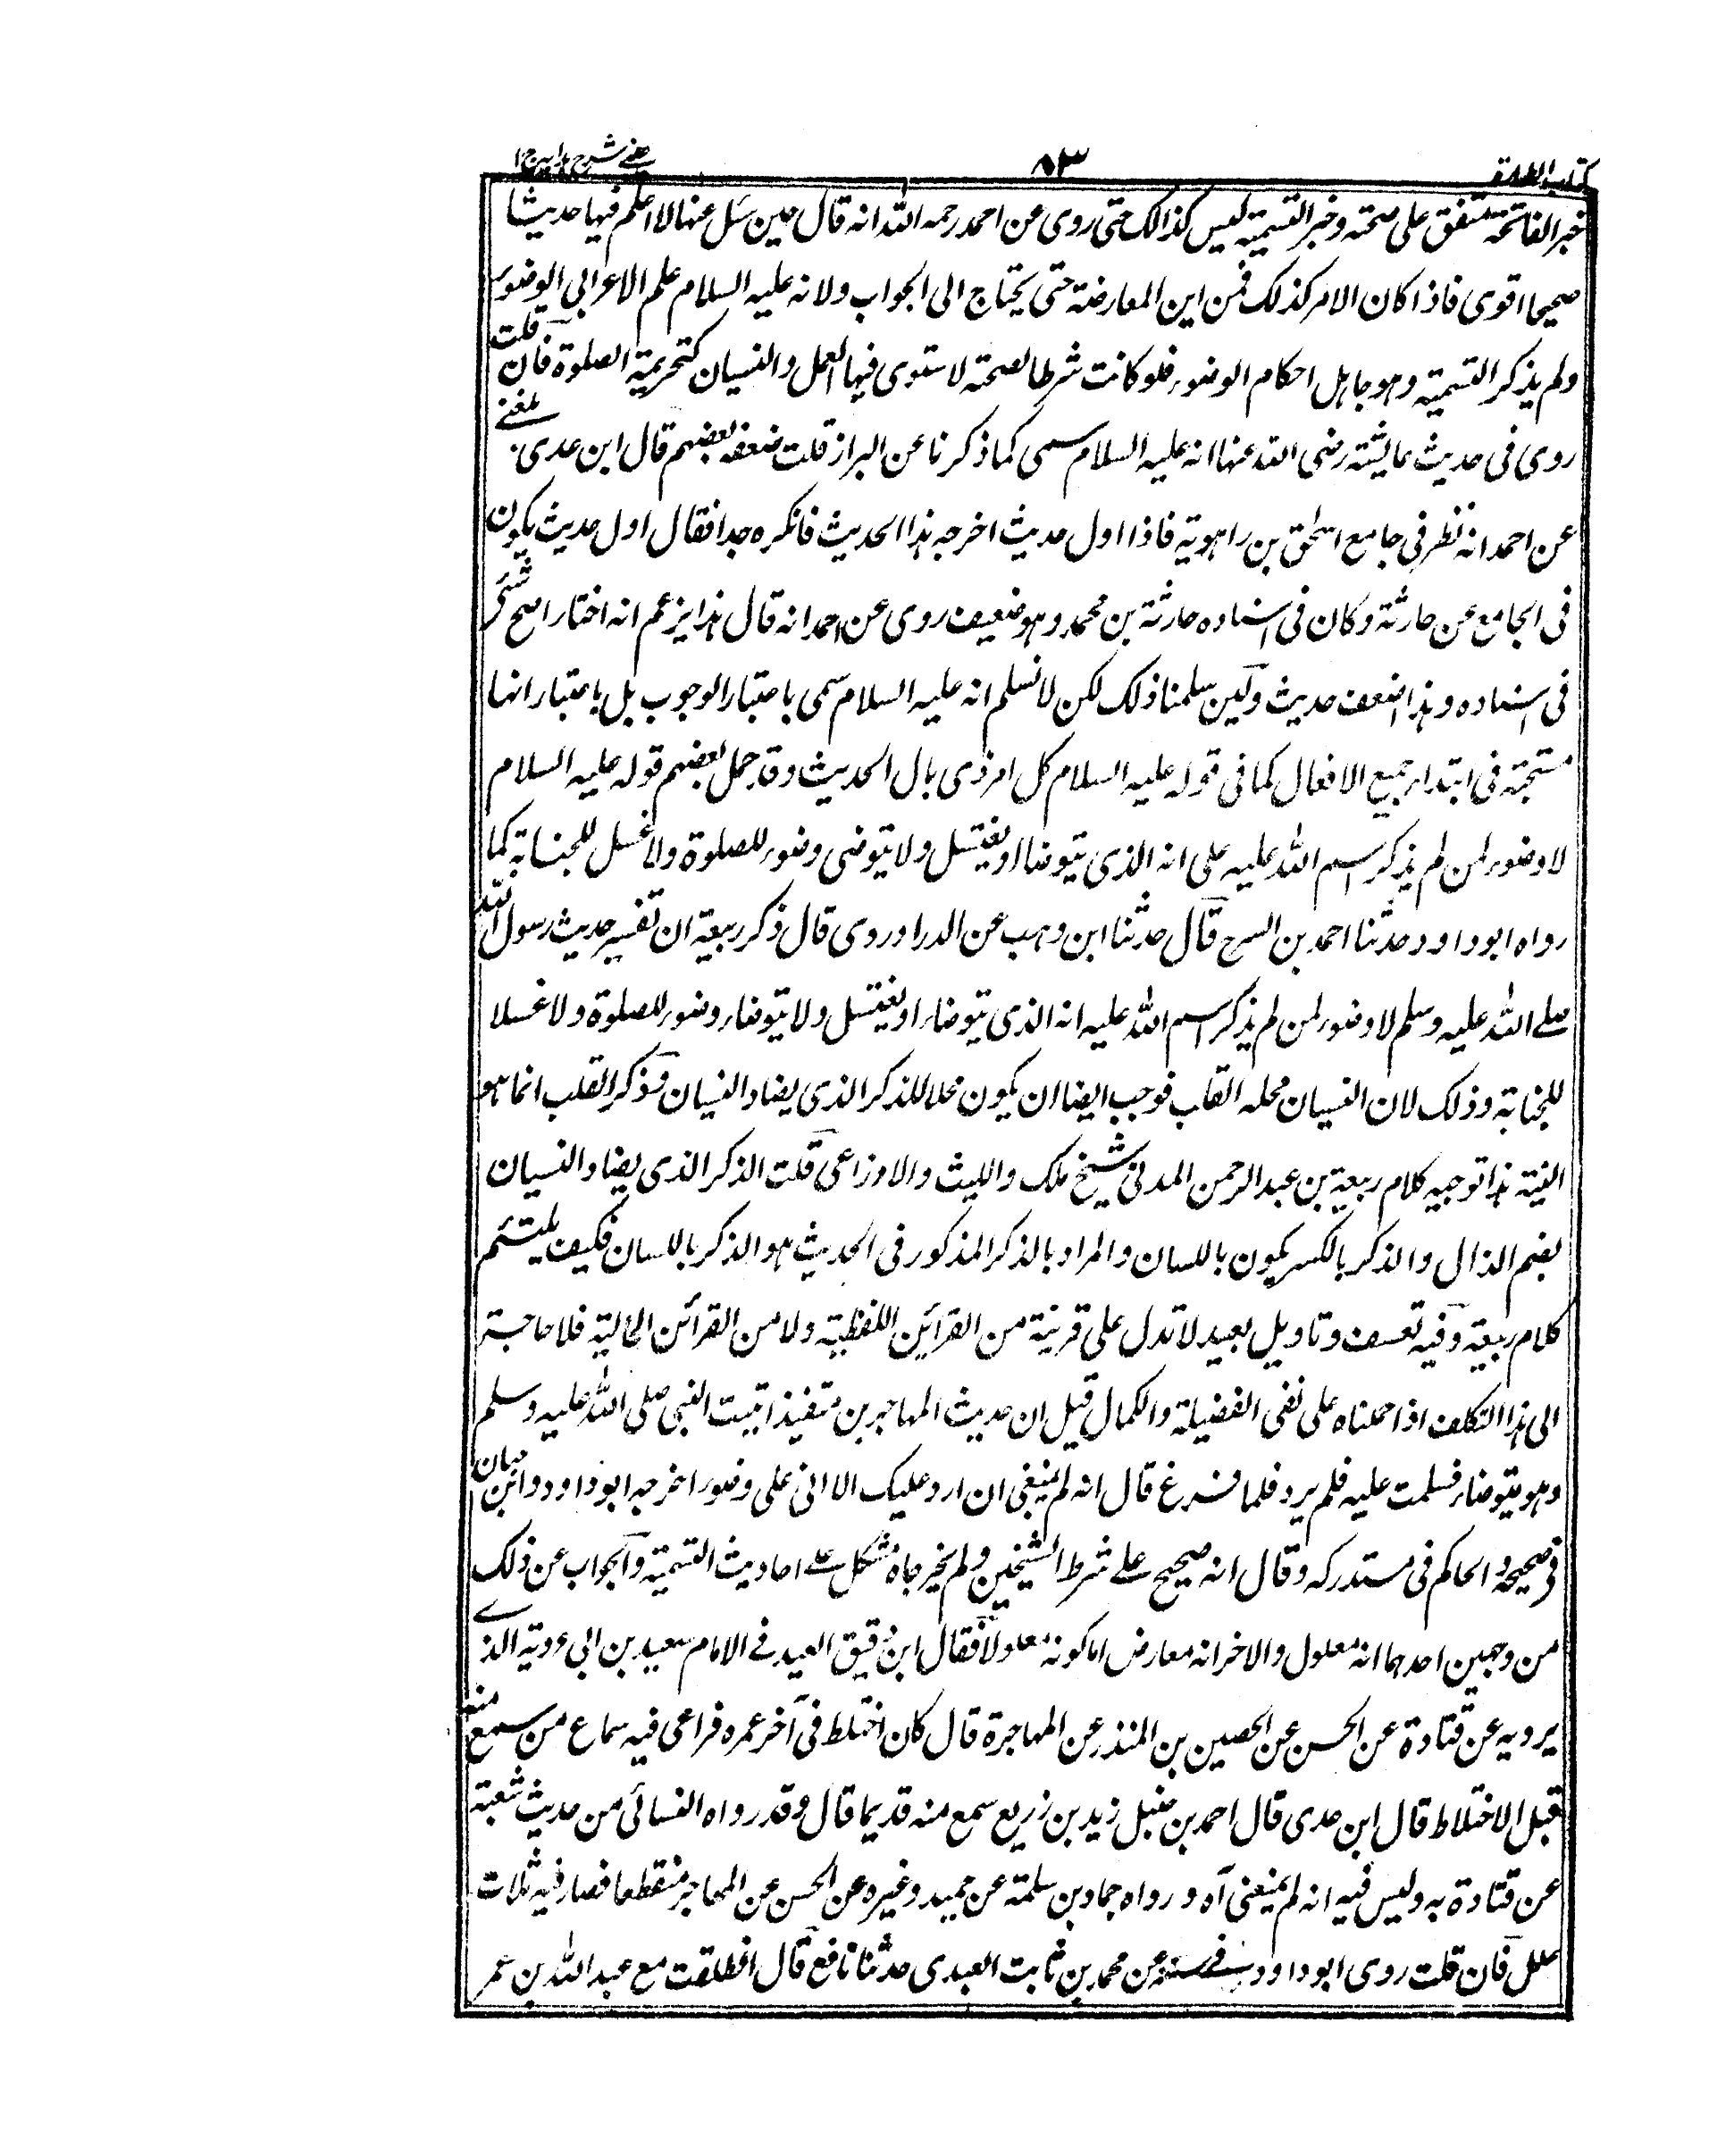 كتاب الطهارة
٨٣
عيني شرح هدايه ج ١
خبر الفاتحة متفق على صحته وخبر التسمية ليس كذالك حتى روى عن احمد رحمه الله انه قال حين سئل عنها لا اعلم فيها حديثا
صحيحا اقوى فاذا كان الامر كذلك فمن اين المعارضة حتى يحتاج الى الجواب ولانه عليه السلام علم الاعرابي الوضوء
ولم يذكر التسمية وهو جاهل احكام الوضوء فلو كانت شرطا لصحته لاستوى فيها العمل والنسيان كتحريمة الصلوة فان قلت
روى فى حديث عايشة رضى الله عنها انه عليه السلام سمى كما ذكرنا عن البزاز قلت ضعفه بعضهم قال ابن عدى بلغنے
عن احمد انه نظر فى جامع اسحٰق بن راهوية فاذا اول حديث اخرجه هذا الحديث فانكره جدا فقال اول حديث يكون
فى الجامع عن حارثة وكان فى اسناده حارثة بن محمد وهو ضعيف روى عن احمد انه قال هذا يزعم انه اختار اصح شئ
فى اسناده وهذا ضعف حديث ولئن سلمنا ذلك لكن لا نسلم انه عليه السلام سمى باعتبار الوجوب بل باعتبار انها
مستحبة فى ابتداء جميع الافعال كما فى قوله عليه السلام كل امر ذى بال الحديث وقد حمل بعضهم قوله عليه السلام
لا وضوء لمن لم يذكر اسم الله عليه على انه الذى يتوضا او يغتسل ولا يتوضى وضوء للصلوة ولا غسل للجنابة كما
رواه ابو داود حدثنا احمد بن السرح قال حدثنا ابن وهب عن الدراوردى قال ذكر ربيعة ان تفسير حديث رسول الله
صلے الله عليه وسلم لا وضوء لمن لم يذكر اسم الله عليه انه الذى يتوضاء او يغتسل ولا يتوضاء وضوء للصلوة ولا غسلا
للجنابة وذلك لان النسيان محله القلب فوجب ايضا ان يكون محلا للذكر الذى يضاد النسيان وذكر القلب انما هو
النية هذا توجيه كلام ربيعة بن عبد الرحمن المدنى شيخ ملك والليث والاوزاعى قلت الذكر الذى يضاد النسيان
بضم الذال والذكر بالكسر يكون باللسان والمراد بالذكر المذكور فى الحديث هو الذكر باللسان فكيف يلتئم
كلام ربيعة وفيه تعسف وتاويل بعيد لا تدل على قرينة من القرائن اللفظية ولا من القرائن الحالية فلا حاجة
الى هذا التكلف اذا حملناه على نفى الفضيلة والكمال قيل ان حديث المهاجر بن منقذ اتيت النبى صلى الله عليه وسلم
وهو يتوضاء فسلمت عليه فلم يرد فلما فرغ قال انه لم يمنعنى ان ارد عليك الا انى على وضوء اخرجه ابو داود وابن حبان
فى صحيحه والحاكم فى مستدركه وقال انه صحيح على شرط الشيخين ولم يخرجاه مشكل على احاديث التسمية والجواب عن ذلك
من وجهين احدهما انه معلول والاخر انه معارض اما كونه معلولا فقال ابن دقيق العيد فے الامام سعيد بن ابى عروبة الذے
يرويه عن قتادة عن الحسن عن الحصين بن المنذر عن المهاجرة قال كان اختلط فى آخر عمره فراعى فيه سماع من سمع منه
قبل الاختلاط قال ابن عدى قال احمد بن حنبل زيد بن زريع سمع منه قديما قال وقد رواه النسائى من حديث شعبة
عن قتادة به وليس فيه انه لم يمنعنى آه ورواه حماد بن سلمة عن حميد وغيره عن الحسن عن المهاجر منقطعا فصار فيه ثلاث
علل فان قلت روى ابو داود فى سننه عن محمد بن ثابت العبدى حدثنا نافع قال انطلقت مع عبد الله بن عمر